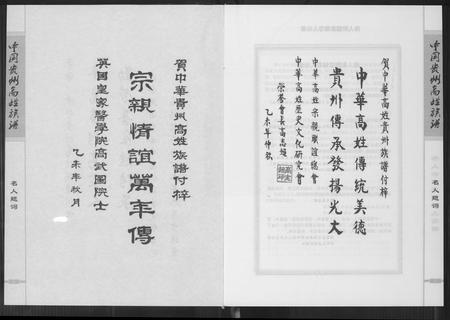 中国贵州高姓族谱
名人题词
賀中華高姓貴州族譜付梓
中華高姓傳統美德
貴州傳承發揚光大
中華高姓宗親聯誼總會
中華高姓歷史文化研究會
榮譽會長高志超
乙未年仲秋
賀中華貴州高姓族譜付梓
宗親情誼萬年傳
英國皇家醫學院高武圖院士
乙未年秋月
中国贵州高姓族谱
名人题词